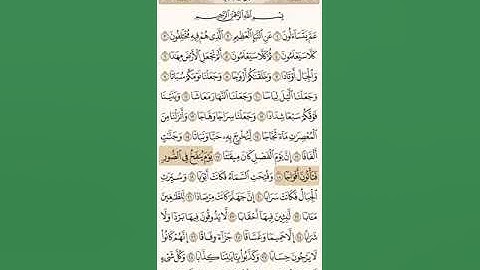 بِسْمِ اللَّهِ الرَّحْمَٰنِ الرَّحِيمِ
عَمَّ يَتَسَاءَلُونَ ١ عَنِ النَّبَإِ الْعَظِيمِ ٢ الَّذِي هُمْ فِيهِ مُخْتَلِفُونَ ٣
كَلَّا سَيَعْلَمُونَ ٤ ثُمَّ كَلَّا سَيَعْلَمُونَ ٥ أَلَمْ نَجْعَلِ الْأَرْضَ مِهَادًا ٦
وَالْجِبَالَ أَوْتَادًا ٧ وَخَلَقْنَاكُمْ أَزْوَاجًا ٨ وَجَعَلْنَا نَوْمَكُمْ سُبَاتًا ٩
وَجَعَلْنَا اللَّيْلَ لِبَاسًا ١٠ وَجَعَلْنَا النَّهَارَ مَعَاشًا ١١ وَبَنَيْنَا
فَوْقَكُمْ سَبْعًا شِدَادًا ١٢ وَجَعَلْنَا سِرَاجًا وَهَّاجًا ١٣ وَأَنزَلْنَا مِنَ
الْمُعْصِرَاتِ مَاءً ثَجَّاجًا ١٤ لِّنُخْرِجَ بِهِ حَبًّا وَنَبَاتًا ١٥ وَجَنَّاتٍ
أَلْفَافًا ١٦ إِنَّ يَوْمَ الْفَصْلِ كَانَ مِيقَاتًا ١٧ يَوْمَ يُنفَخُ فِي الصُّورِ
فَتَأْتُونَ أَفْوَاجًا ١٨ وَفُتِحَتِ السَّمَاءُ فَكَانَتْ أَبْوَابًا ١٩ وَسُيِّرَتِ
الْجِبَالُ فَكَانَتْ سَرَابًا ٢٠ إِنَّ جَهَنَّمَ كَانَتْ مِرْصَادًا ٢١ لِّلطَّاغِينَ
مَآبًا ٢٢ لَّابِثِينَ فِيهَا أَحْقَابًا ٢٣ لَّا يَذُوقُونَ فِيهَا بَرْدًا وَلَا
شَرَابًا ٢٤ إِلَّا حَمِيمًا وَغَسَّاقًا ٢٥ جَزَاءً وِفَاقًا ٢٦ إِنَّهُمْ كَانُوا
لَا يَرْجُونَ حِسَابًا ٢٧ وَكَذَّبُوا بِآيَاتِنَا كِذَّابًا ٢٨ وَكُلَّ شَيْءٍ